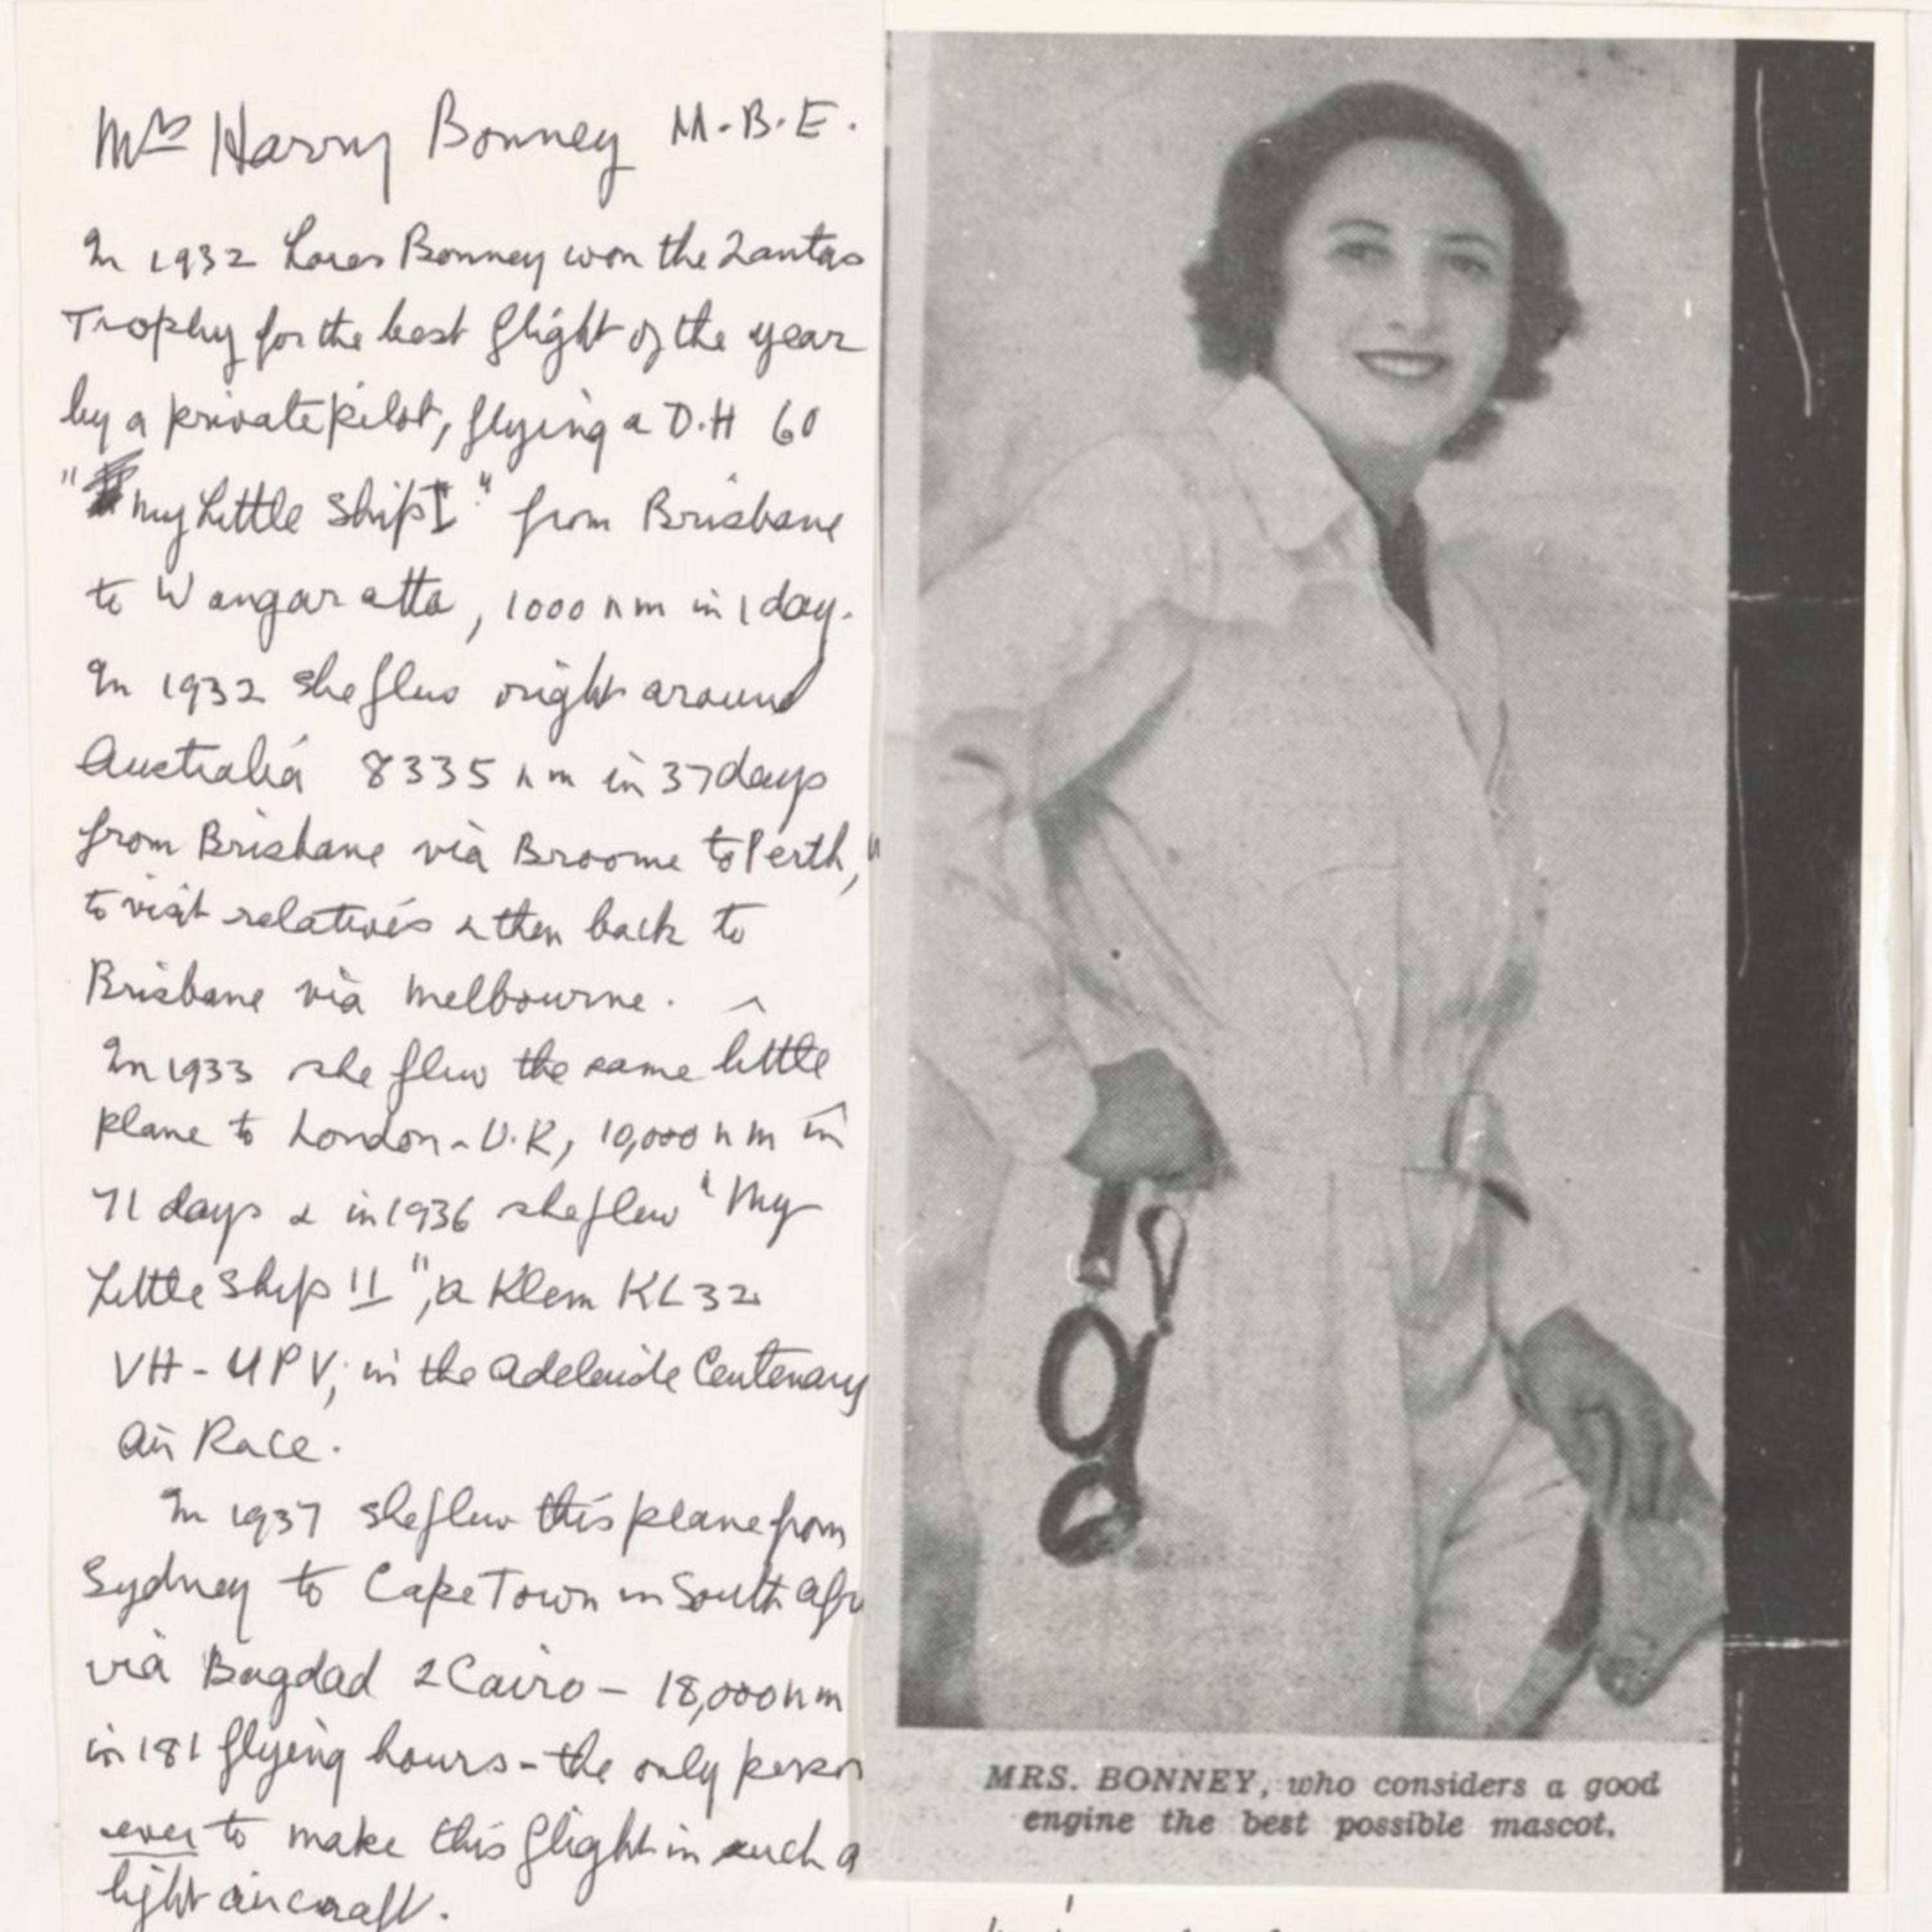 Mrs Harry Bonney M.B.E.
In 1932 Lores Bonney won the Qantas
Trophy for the best flight of the year
by a private pilot, flying a D.H 60
"my Little Ship I" from Brisbane
to Wangaratta, 1000 nm in 1 day.
In 1932 she flew right around
Australia 8335 nm in 37 days
from Brisbane via Broome to Perth,
to visit relatives & then back to
Brisbane via Melbourne.
In 1933 she flew the same little
plane to London - U.K, 10,000 nm in
71 days & in 1936 she flew "My
Little Ship II", a Klem KL 32
VH-UPV, in the Adelaide Centenary
Air Race.
In 1937 she flew this plane from
Sydney to Cape Town in South Afr
via Bagdad & Cairo - 18,000 nm
in 181 flying hours - the only person
ever to make this flight in such a
light aircraft.
MRS. BONNEY, who considers a good
engine the best possible mascot.